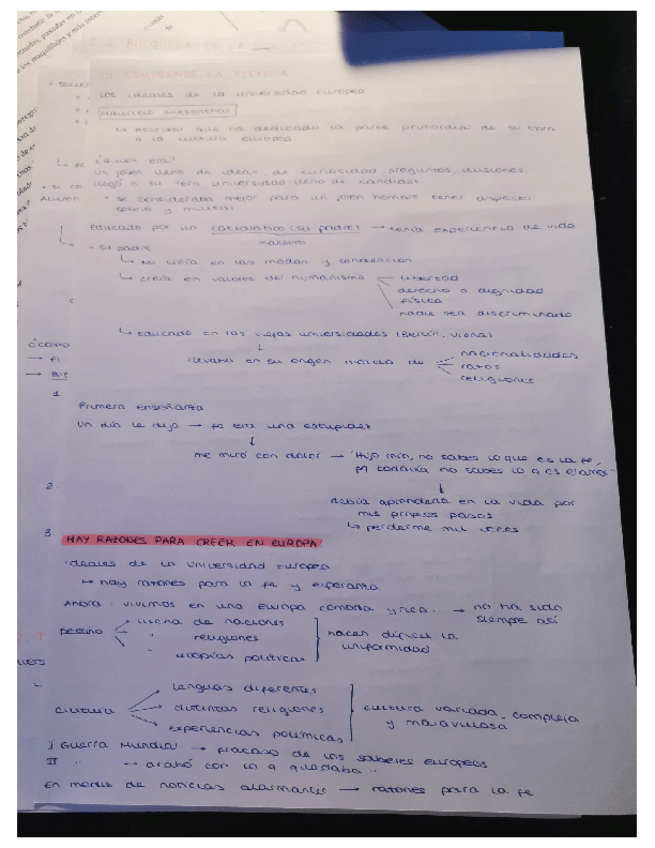 III COMPRENDE LA
LOS IDEALES DE LA UNIVERSIDAD EUROPEA
MAURICIO
Es escritor que ha dedicado la parte primordial de su
a la cultura europea
¿Quién era?
Un joven lleno de ideas, de curiosidad, preguntas, ilusiones.
llegó a su 1era universidad lleno de candidez
Alumn
se consideraba mejor para un joven hombre tener aspecto
serio y
Educado por un catedrático (su padre) → tenía experiencia de vida
maestro
- Su padre
↳ No creía en las modas y tendencias
↳ creía en valores del humanismo
libertad
derecho a dignidad
física
nadie sea discriminado
↳ educado en las viejas universidades (Berlín, Viena)
↓
en su origen de
nacionalidades
razas
religiones
¿cómo
→ El
→
1
Primera enseñanza
Un día le dijo → fe era una estupidez
↓
me miró con dolor → "Hijo mío, no sabes lo que es la fe,
todavía no sabes lo q es el amor"
↓
2
debía aprenderla en la vida por
mis propios pasos
↳ perderme mil veces
3
HAY RAZONES PARA CREER EN EUROPA
Ideales de la Universidad Europea
↳ hay razones para la fe y esperanza
Ahora: vivimos en una Europa cómoda y rica. → no ha sido
siempre así
Destino
llena de naciones
" religiones
" utopías políticas
hacen difícil la
uniformidad
cultura
lenguas diferentes
distintas religiones
experiencias polémicas
cultura variada, compleja
y maravillosa
I Guerra Mundial → fracaso de los saberes europeos
II " " → acabó con lo q quedaba "
En medio de noticias alarmantes → razones para la fe